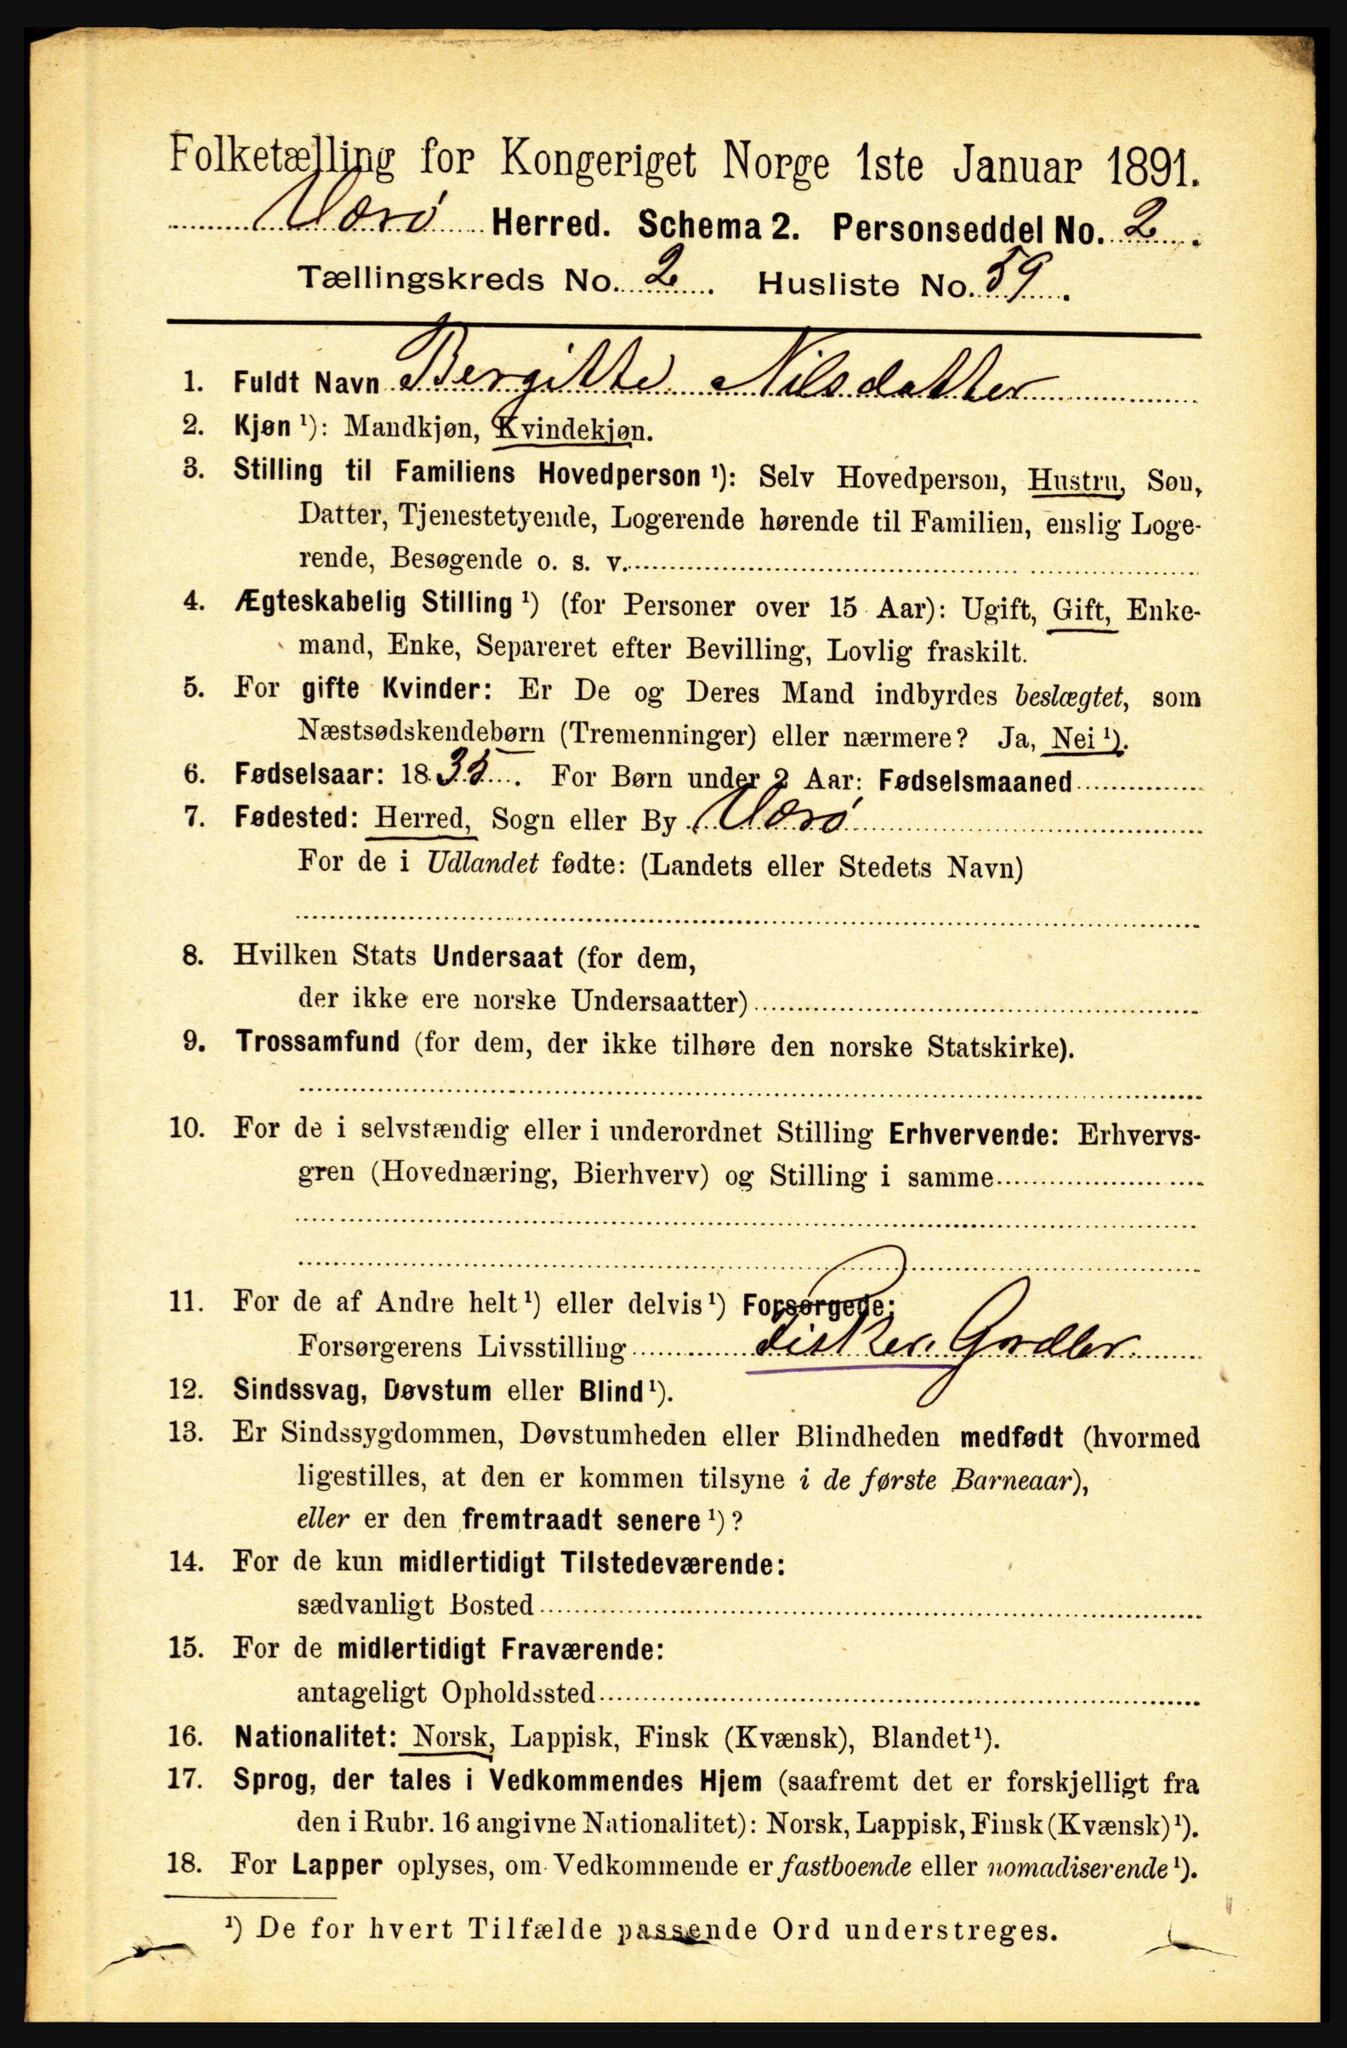 Folketælling for Kongeriget Norge 1ste Januar 1891.
Værø Herred. Schema 2. Personseddel No. 2.
Tællingskreds No. 2. Husliste No. 59.
1. Fuldt Navn Bergitte Nilsdatter
2. Kjøn ¹): Mandkjøn, Kvindekjøn.
3. Stilling til Familiens Hovedperson ¹): Selv Hovedperson, Hustru, Søn,
Datter, Tjenestetyende, Logerende hørende til Familien, enslig Loge-
rende, Besøgende o. s. v.
4. Ægteskabelig Stilling ¹) (for Personer over 15 Aar): Ugift, Gift, Enke-
mand, Enke, Separeret efter Bevilling, Lovlig fraskilt.
5. For gifte Kvinder: Er De og Deres Mand indbyrdes beslægtet, som
Næstsødskendebørn (Tremenninger) eller nærmere? Ja, Nei ¹).
6. Fødselsaar: 1835. For Børn under 2 Aar: Fødselsmaaned
7. Fødested: Herred, Sogn eller By Værø
For de i Udlandet fødte: (Landets eller Stedets Navn)
8. Hvilken Stats Undersaat (for dem,
der ikke ere norske Undersaatter)
9. Trossamfund (for dem, der ikke tilhøre den norske Statskirke).
10. For de i selvstændig eller i underordnet Stilling Erhvervende: Erhvervs-
gren (Hovednæring, Bierhverv) og Stilling i samme
11. For de af Andre helt ¹) eller delvis ¹) Forsørgede:
Forsørgerens Livsstilling Fisker,
12. Sindssvag, Døvstum eller Blind ¹).
13. Er Sindssygdommen, Døvstumheden eller Blindheden medfødt (hvormed
ligestilles, at den er kommen tilsyne i de første Barneaar),
eller er den fremtraadt senere ¹)?
14. For de kun midlertidigt Tilstedeværende:
sædvanligt Bosted
15. For de midlertidigt Fraværende:
antageligt Opholdssted
16. Nationalitet: Norsk, Lappisk, Finsk (Kvænsk), Blandet ¹).
17. Sprog, der tales i Vedkommendes Hjem (saafremt det er forskjelligt fra
den i Rubr. 16 angivne Nationalitet): Norsk, Lappisk, Finsk (Kvænsk) ¹).
18. For Lapper oplyses, om Vedkommende er fastboende eller nomadiserende ¹).
¹) De for hvert Tilfælde passende Ord understreges.